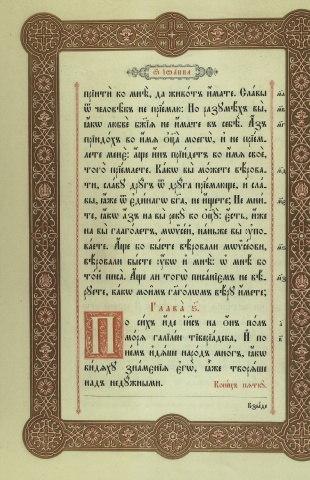 Ѿ Іѡанна
прїити ко мнѣ, да животъ имате. Славы
ѿ человѣкъ не прїемлю: Но разумѣхъ вы,
ꙗкѡ любве бж҃їѧ не имате въ себѣ. Азъ
прїидохъ во имѧ оц҃а моегѡ, и не прїем-
лете мене: аще инъ прїидетъ во имѧ свое,
того прїемлете. Какѡ вы можете вѣрова-
ти, славу другъ ѿ друга прїемлюще, и сла-
вы, ꙗже ѿ единагѡ бг҃а, не ищете; Не мни-
те, ꙗкѡ азъ на вы реку ко оц҃у: есть, иже
на вы глаголетъ, мѡѷсей, наньже вы ѹпо-
ваете. Аще бо бысте вѣровали мѡѷсеови,
вѣровали бысте ѹбѡ и мнѣ: ѡ мнѣ бо
той писа. Аще ли тогѡ писанїємъ не вѣ-
руете, какѡ моимъ глаголѡмъ вѣру имете;
Глава ѕ҃.
По сихъ иде іи҃съ на онъ полъ
морѧ галілеи тіверїадска. И по
немъ идѧше народъ многъ, ꙗкѡ
видѧху знаменїѧ егѡ, ꙗже творѧше
надъ недужными.
Конецъ пѧтку.
Взыде